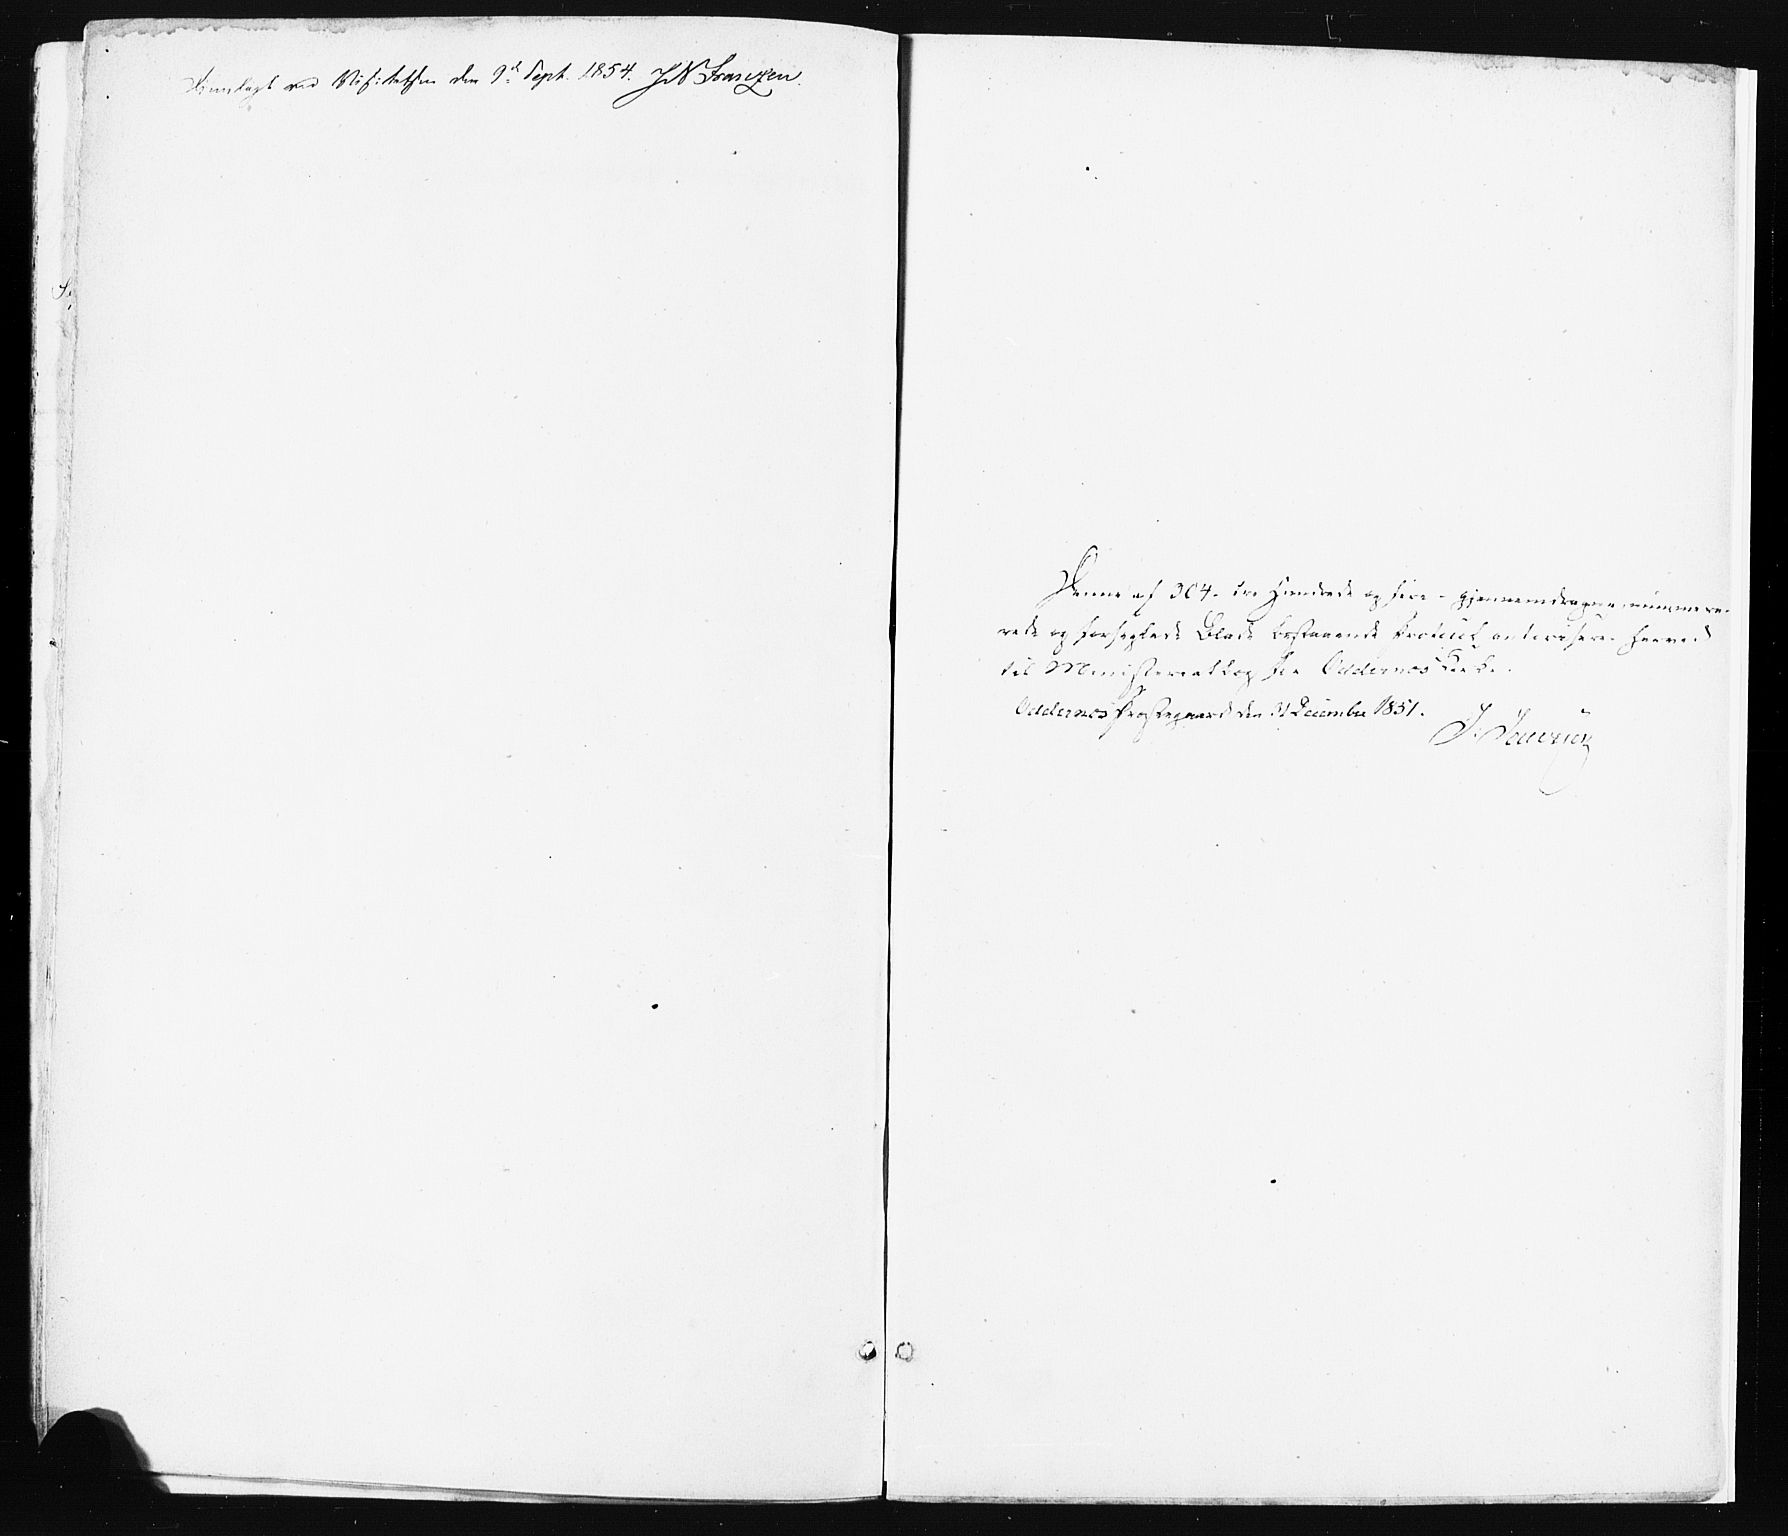 Fremlagt ved Visitatsen den 9de Sept. 1854.
Denne af 304 - tre Hundrede og fire - gjennemdragne, numme-
rede og forseglede Blade bestaaende Protocol autoriseres herved
til Ministerialbog for Oddernes Kirke.
Oddernes Præstegaard den 31 December 1851.